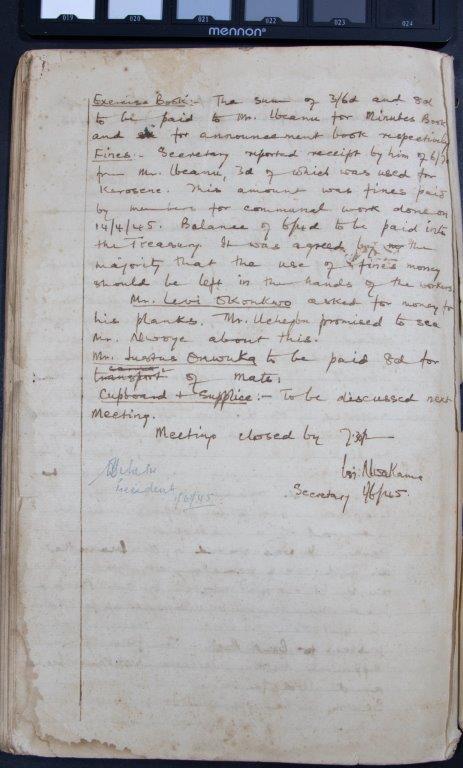 019 020 021 022 023 024
mennon
Exercise Book:- The sum of 3/6d and 8d
to be paid to Mr. Ubeanu for Minutes Book
and for announcement book respectively
Fines:- Secretary reported receipt by him of 6/7d
from Mr. Ubeanu, 3d of which was used for
Kerosene. This amount was fines paid
by members for communal work done on
14/4/45. Balance of 6/4d to be paid into
the Treasury. It was agreed by the
majority that the use of fines money
should be left in the hands of the workers.
Mr. Levi Okonkwo asked for money for
his planks. Mr. Uchegbu promised to see
Mr. Nwoye about this.
Mr. Justus Onwuka to be paid 8d for
of mats.
Cupboard + Supplice:- To be discussed next
Meeting.
Meeting closed by 7.30
Secretary 1/6/45.
President